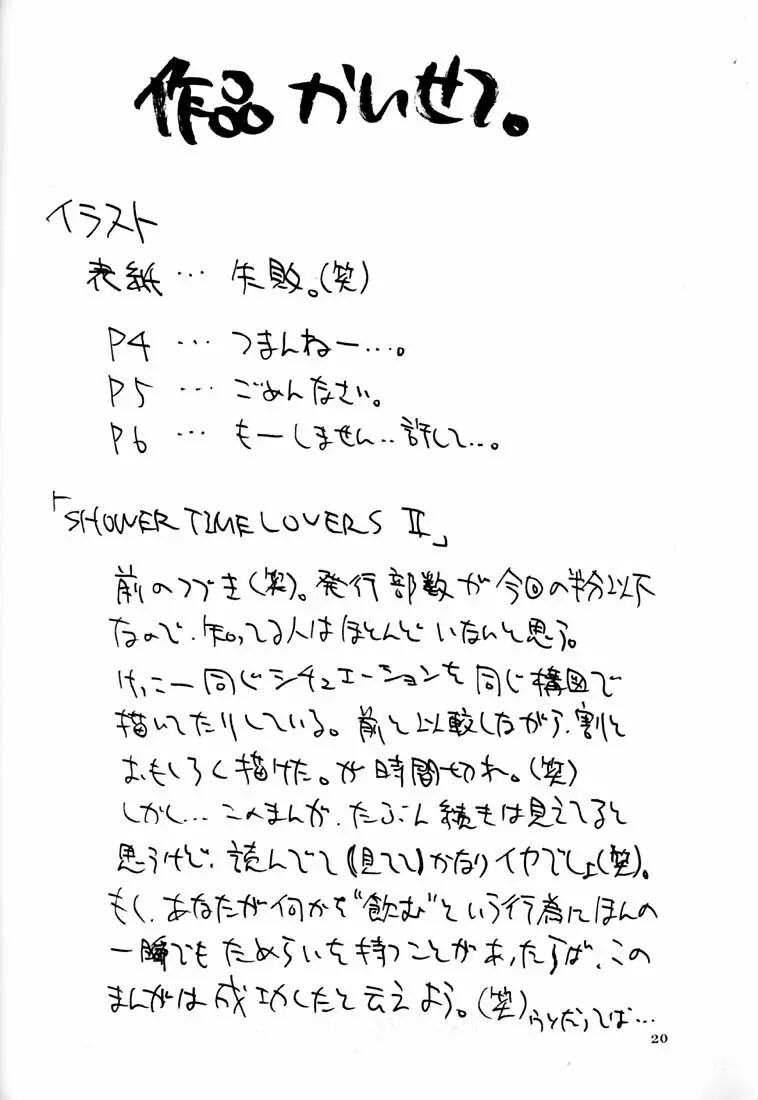 作品かいせつ。
イラスト
表紙…失敗。(笑)
P4…つまんねー…。
P5…ごめんなさい。
P6…もーしません‥許して…。
「SHOWER TIME LOVERS Ⅱ」
前のつづき(笑)。発行部数が今回の半分以下
なので、知ってる人はほとんどいないと思う。
けっこー同じシチュエーションを同じ構図で
描いてたりしている。前と比較しながら、割と
おもしろく描けた。が時間切れ。(笑)
しかし…このまんが、たぶん続きは見えてると
思うけど、読んでて(見てて)かなりイヤでしょ(笑)。
もし、あなたが何かを"飲む"という行為にほんの
一瞬でもためらいを持つことがあったらば、この
まんがは成功したと云えよう。(笑)うそだってば…
20